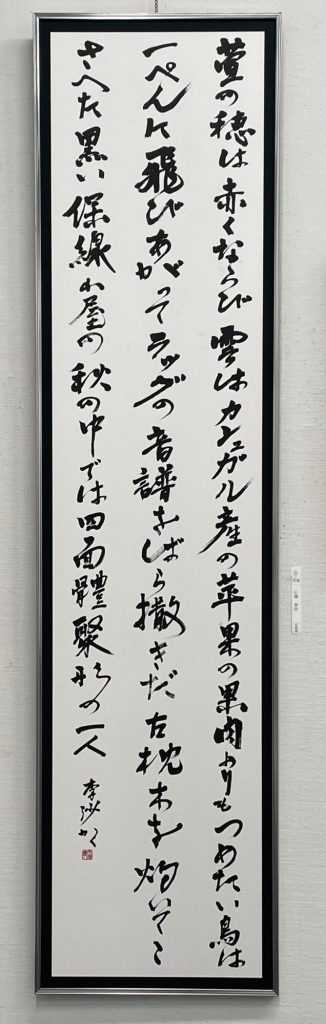 萱の穂は赤くならび雲はカシュガル産の苹果の果肉よりもつめたい鳥は
一ぺんに飛びあがってラッグの音譜をばら撒きだ古枕木を灼いてこ
さへた黒い保線小屋の秋の中では四面體聚形の一人